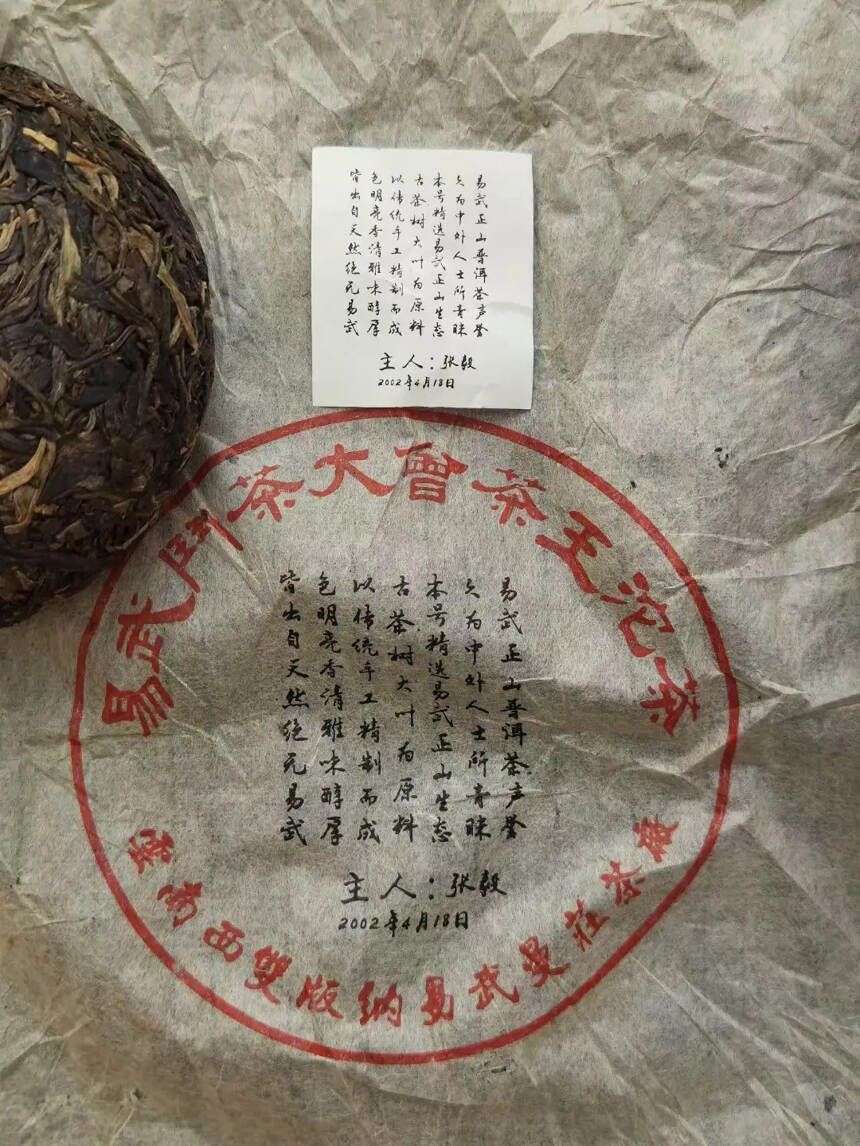 易武正山普洱茶声誉
久为中外人士所青睐
本号精选易武正山生态
古茶树大叶为原料
以传统手工精制而成
色明亮香清雅味醇厚
皆出自天然绝无易武
主人：张毅
2002年4月18日
易武鬥茶大會茶王沱茶
易武正山普洱茶声誉
久为中外人士所青睐
本号精选易武正山生态
古茶树大叶为原料
以传统手工精制而成
色明亮香清雅味醇厚
皆出自天然绝无易武
主人：张毅
2002年4月18日
雲南西雙版納易武曼莊茶廠